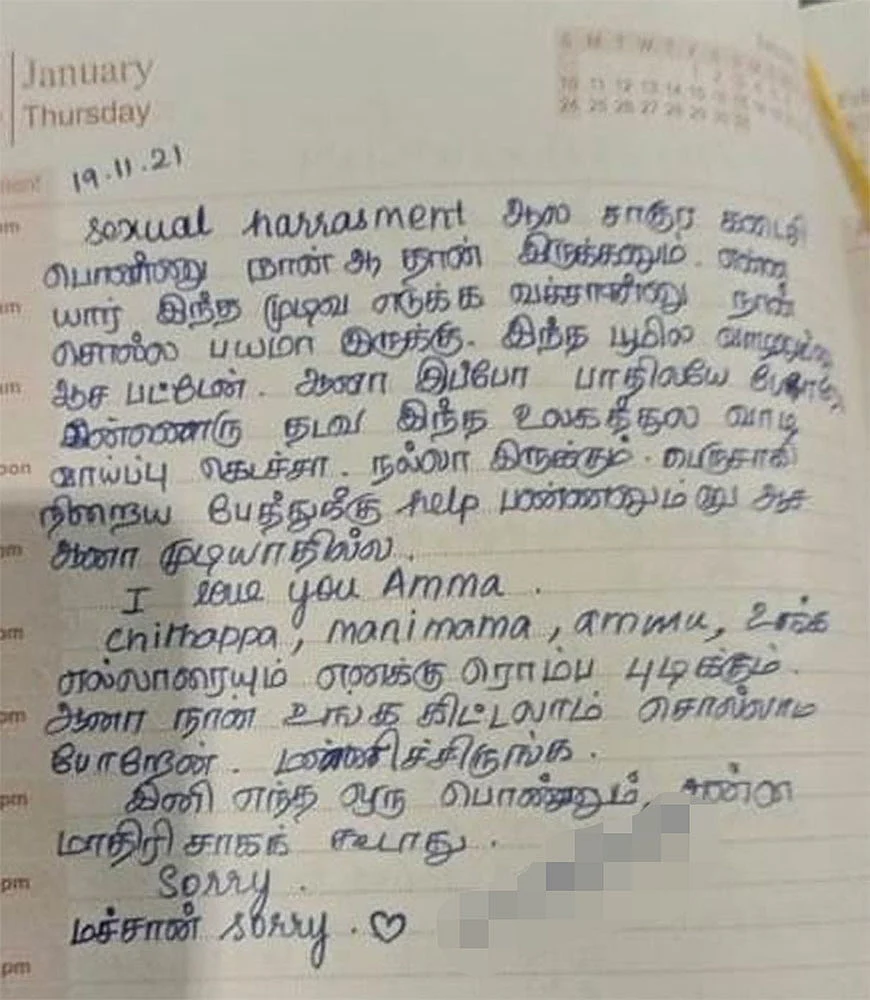 January
Thursday
19.11.21
sexual harrasment ஆல சாகுர கடைசி
பொண்ணு நான் ஆ தான் இருக்கனும். என்ன
யார் இந்த முடிவ எடுக்க வச்சான்னு நான்
சொல்ல பயமா இருக்கு. இந்த பூமில
ஆச பட்டேன். ஆனா இப்போ பாதிலயே
இன்னொரு தடவ இந்த உலகத்துல வாழ
வாய்ப்பு கெடச்சா. நல்லா இருக்கும். பெருசாகி
நிறைய பேத்துக்கு help பண்ணனும் னு ஆச
ஆனா முடியாதில்ல.
I love you Amma.
chithappa, manimama, ammu, உங்க
எல்லாரையும் எனக்கு ரொம்ப புடிக்கும்.
ஆனா நான் உங்க கிட்டலாம் சொல்லாம
போறேன். மன்னிச்சிருங்க.
இனி எந்த ஒரு பொண்ணும், என்ன
மாதிரி சாகக் கூடாது.
Sorry.
மச்சான் sorry. ♡